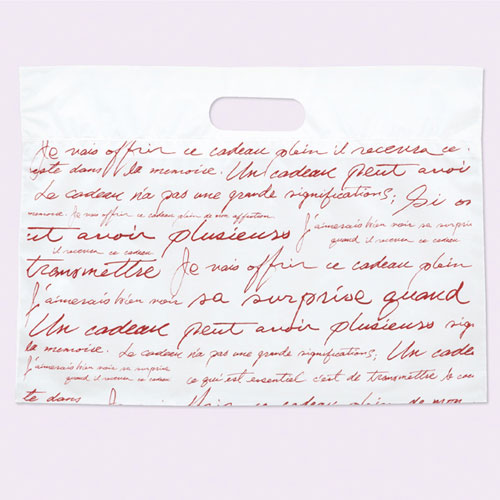 Je vais offrir ce cadeau plein il recevra ce
reste dans la memoire. Un cadeau peut avoir
Le cadeau n'a pas une grande significations; Si on
memoire. Je vais offrir ce cadeau plein de mon affection
J'aimerais bien voir sa surprise
ut avoir plusieurs
quand il recevra ce cadeau
il recevra ce cadeau
transmettre Je vais offrir ce cadeau plein
J'aimerais bien voir sa surprise quand
Un cadeau peut avoir plusieurs sign
la memoire. Le cadeau n'a pas une grande significations; Un cade
J'aimerais bien voir sa surprise
quand il recevra ce cadeau
ce qui est essentiel c'est de transmettre le coeu
te dans Je vais offrir ce cadeau plein de mon